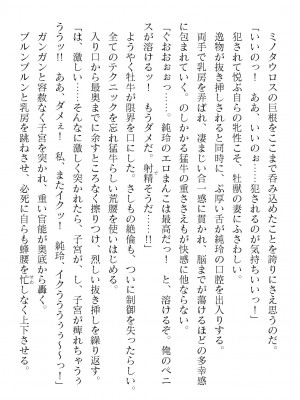 ミノタウロスの巨根をここまで呑み込めたことを誇りにさえ思うのだ。
「いいのっ！　ああ　いいのぉ……犯されるのが気持ちいいっ！」
犯されて悦ぶ自らの牝性こそ、牡獣の妻にふさわしい。
逸物が抜き挿しされると同時に、ぶ厚い舌が純玲の口腔を出入りする。
両手で乳房を弄ばれ、凄まじい合一感に貫かれ、脳までが蕩けるほどの多幸感
に包まれていく。のしかかる猛牛の重ささえもが快感に他ならない。
「ぐおおぉぉっ……。純玲のエロまんこは最高だっ！　と、溶けるぞ。俺のペニ
スが溶けるッ！　もうダメだ。射精そうだ……!!」
ようやく牡牛が限界を口にした。さしもの絶倫も、ついに制御を失ったらしい。
全てのテクニックを忘れ猛牛らしい荒腰を使いはじめる。
入り口から最奥まで余すところなく擦りつけ、烈しい抜き挿しを繰り返す。
「は、激しい……そんなに激しく突かれたら、子宮が、し、子宮が痺れちゃうぅ
ううッ!!　ああ、ダメぇ！　私、またイクッ！　純玲、イクうううぅぅぅ〜っ！」
ガンガンと容赦なく子宮を突かれ、重い官能が奥底から轟く。
ブルンブルンと乳房を跳ねさせ、必死に自らも蜂腰を忙しなく上下させる。